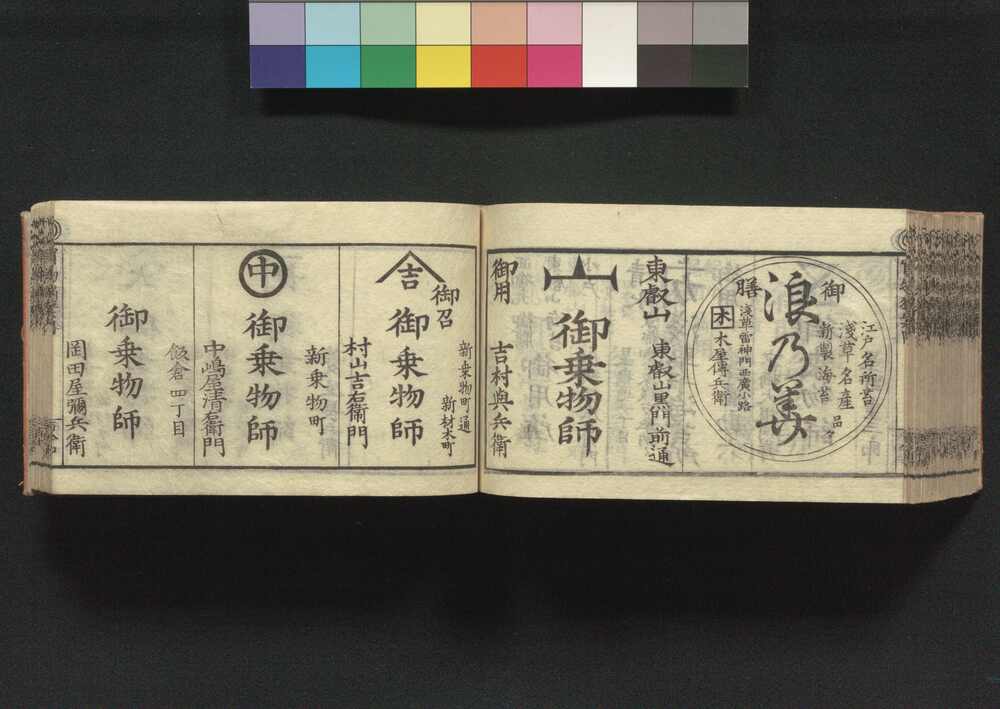 江戸名所苔
浅草名産
新製海苔 品々
御膳
浪乃花
浅草雷神門西廣小路
木 木屋傳兵衛
東叡山
東叡山黒門前通
御乗物師
御用
吉村與兵衛
新乗物町通
新材木町
御召
吉
御乗物師
村山吉右衛門
新乗物町
中
御乗物師
中嶋屋清右衛門
飯倉四丁目
御乗物師
岡田屋彌兵衛